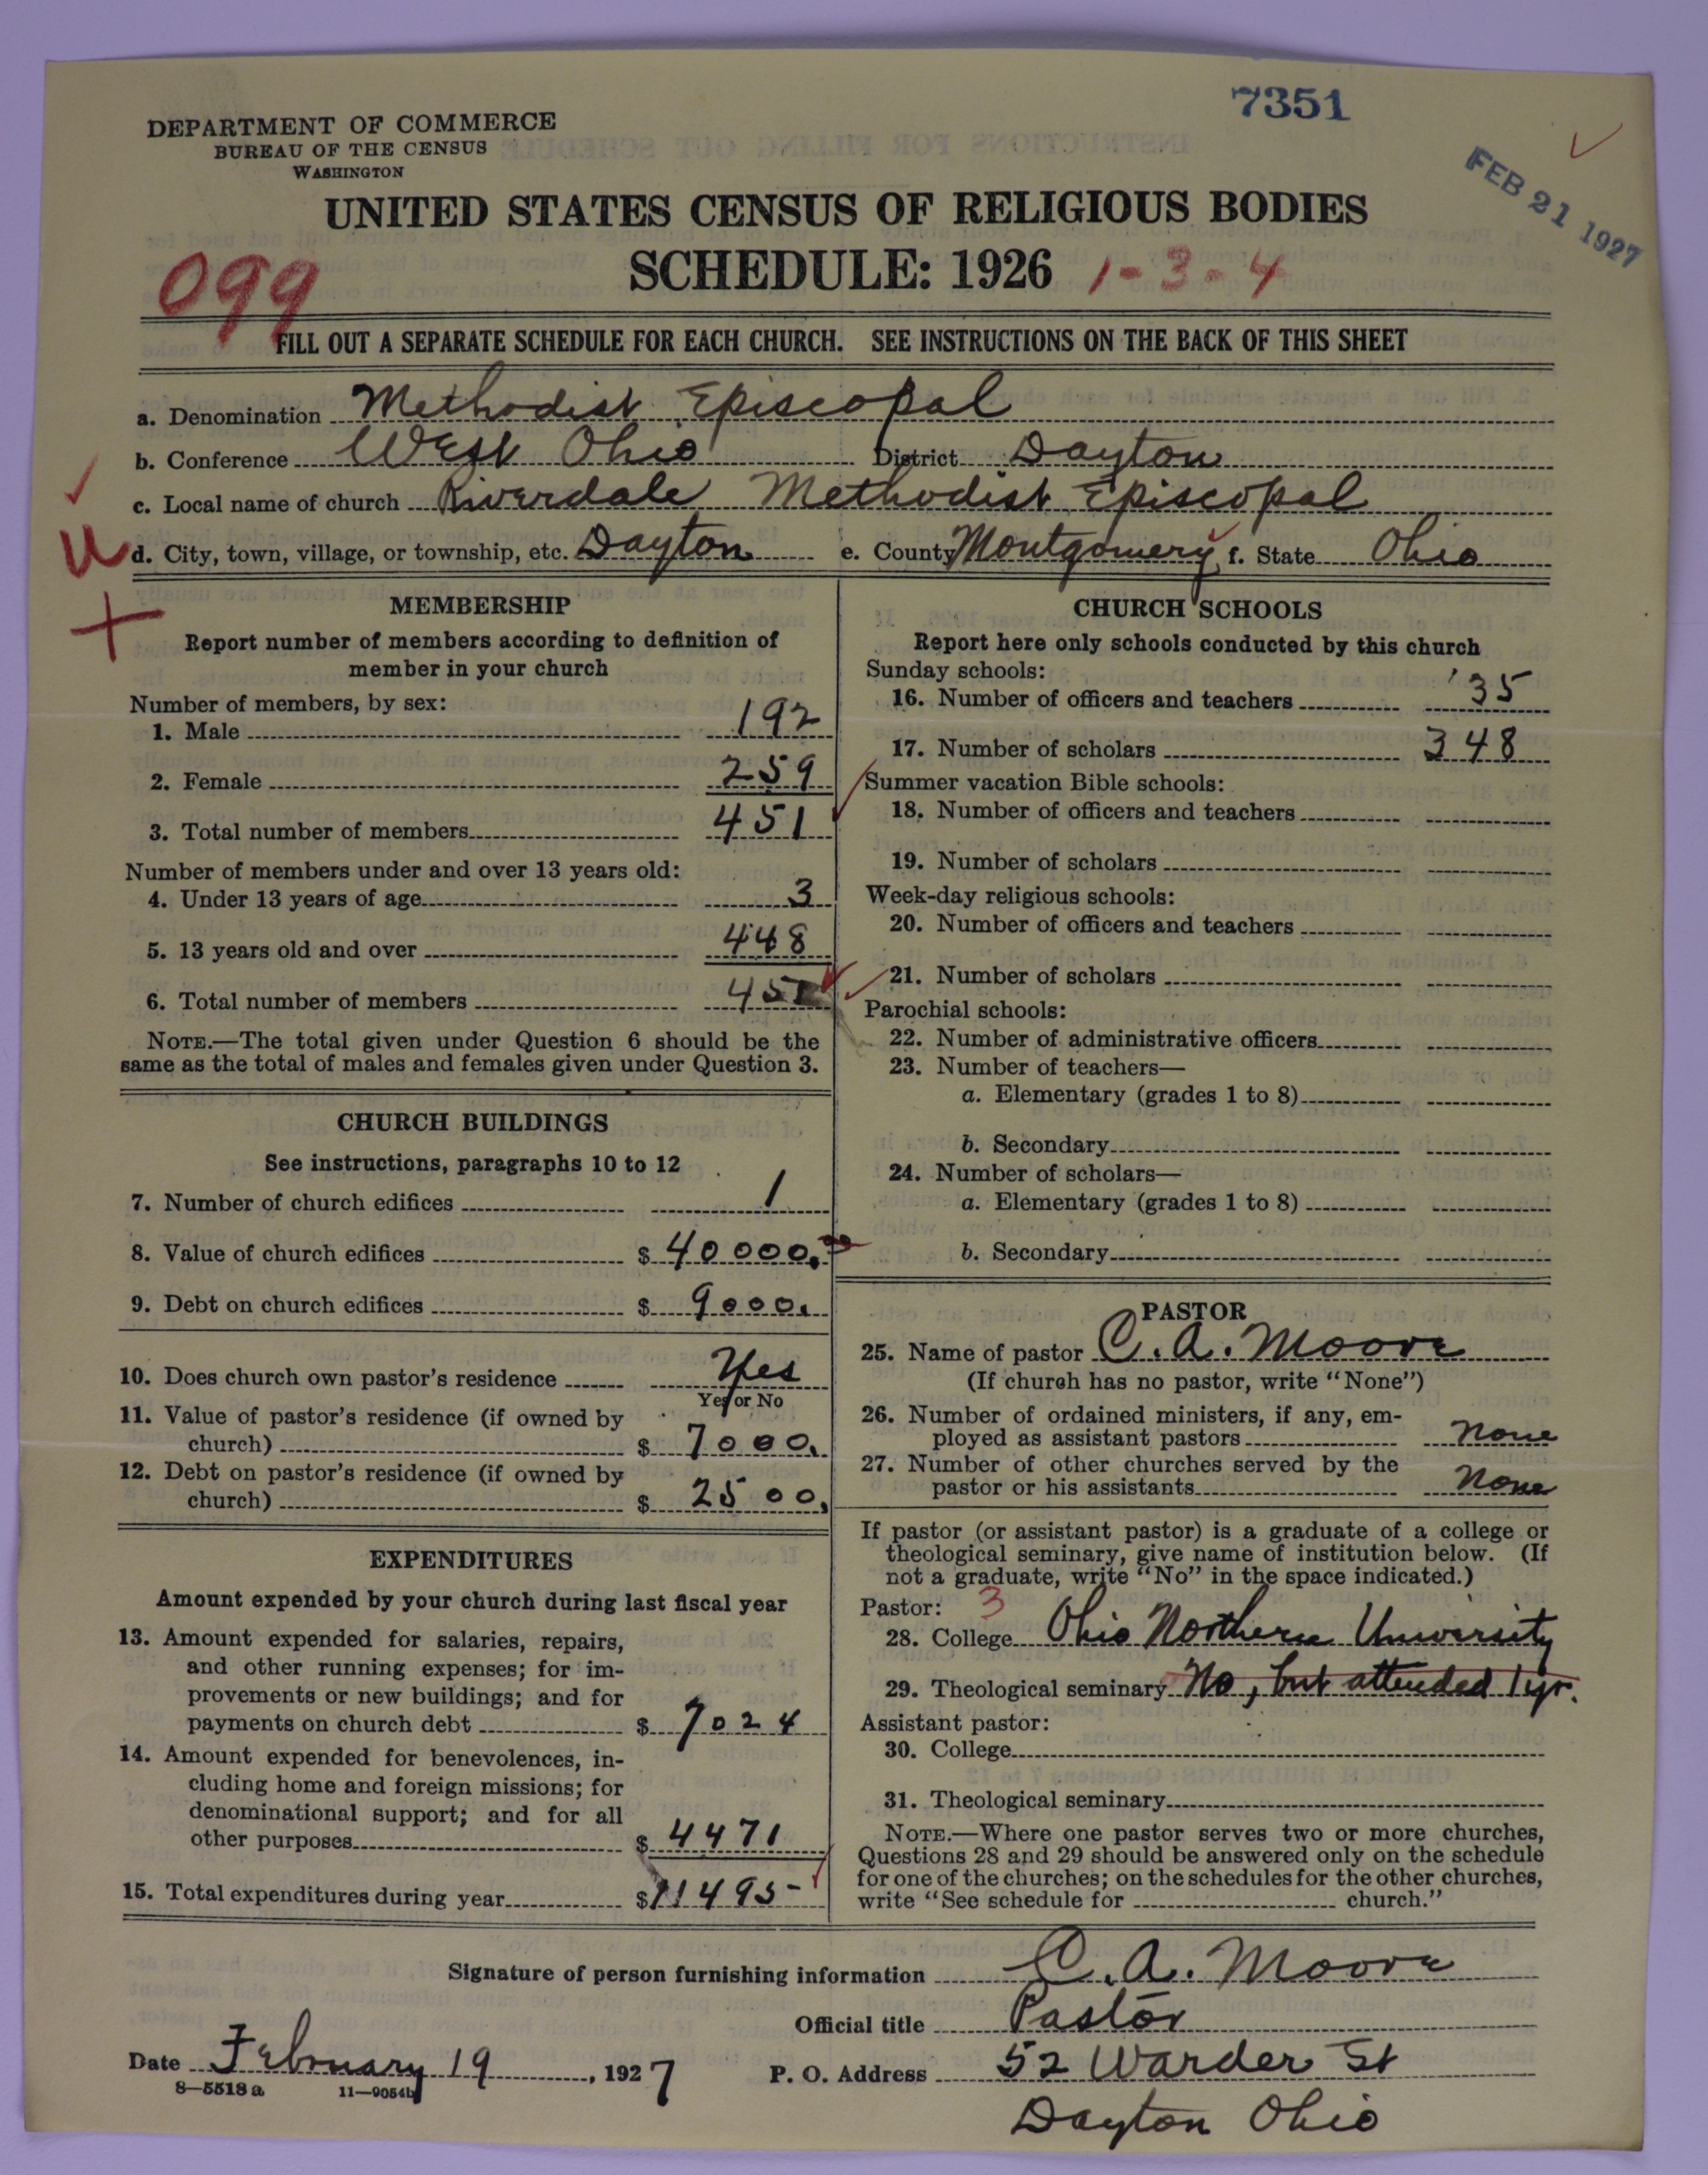 7351
DEPARTMENT OF COMMERCE
BUREAU OF THE CENSUS
WASHINGTON
FEB 21 1927
UNITED STATES CENSUS OF RELIGIOUS BODIES
SCHEDULE: 1926 1-3-4
099
FILL OUT A SEPARATE SCHEDULE FOR EACH CHURCH. SEE INSTRUCTIONS ON THE BACK OF THIS SHEET
a. Denomination Methodist Episcopal
b. Conference West Ohio District Dayton
c. Local name of church Riverdale Methodist Episcopal
d. City, town, village, or township, etc. Dayton e. County Montgomery f. State Ohio
MEMBERSHIP
Report number of members according to definition of
member in your church
Number of members, by sex:
1. Male 192
2. Female 259
3. Total number of members 451
Number of members under and over 13 years old:
4. Under 13 years of age 3
5. 13 years old and over 448
6. Total number of members 451
NOTE.—The total given under Question 6 should be the
same as the total of males and females given under Question 3.
CHURCH BUILDINGS
See instructions, paragraphs 10 to 12
7. Number of church edifices 1
8. Value of church edifices $ 40000.00
9. Debt on church edifices $ 9000.
10. Does church own pastor's residence Yes
Yes or No
11. Value of pastor's residence (if owned by
church) $ 7000.
12. Debt on pastor's residence (if owned by
church) $ 2500.
EXPENDITURES
Amount expended by your church during last fiscal year
13. Amount expended for salaries, repairs,
and other running expenses; for im-
provements or new buildings; and for
payments on church debt $ 7024
14. Amount expended for benevolences, in-
cluding home and foreign missions; for
denominational support; and for all
other purposes $ 4471
15. Total expenditures during year $ 11495-
CHURCH SCHOOLS
Report here only schools conducted by this church
Sunday schools:
16. Number of officers and teachers 35
17. Number of scholars 348
Summer vacation Bible schools:
18. Number of officers and teachers
19. Number of scholars
Week-day religious schools:
20. Number of officers and teachers
21. Number of scholars
Parochial schools:
22. Number of administrative officers
23. Number of teachers—
a. Elementary (grades 1 to 8)
b. Secondary
24. Number of scholars—
a. Elementary (grades 1 to 8)
b. Secondary
PASTOR
25. Name of pastor C. A. Moore
(If church has no pastor, write "None")
26. Number of ordained ministers, if any, em-
ployed as assistant pastors None
27. Number of other churches served by the
pastor or his assistants None
If pastor (or assistant pastor) is a graduate of a college or
theological seminary, give name of institution below. (If
not a graduate, write "No" in the space indicated.)
Pastor: 3
28. College Ohio Northern University
29. Theological seminary No, but attended 1 yr.
Assistant pastor:
30. College
31. Theological seminary
NOTE.—Where one pastor serves two or more churches,
Questions 28 and 29 should be answered only on the schedule
for one of the churches; on the schedules for the other churches,
write "See schedule for church."
Signature of person furnishing information C. A. Moore
Official title Pastor
Date February 19, 1927 P. O. Address 52 Warder St
8—5518a 11—9054b
Dayton Ohio